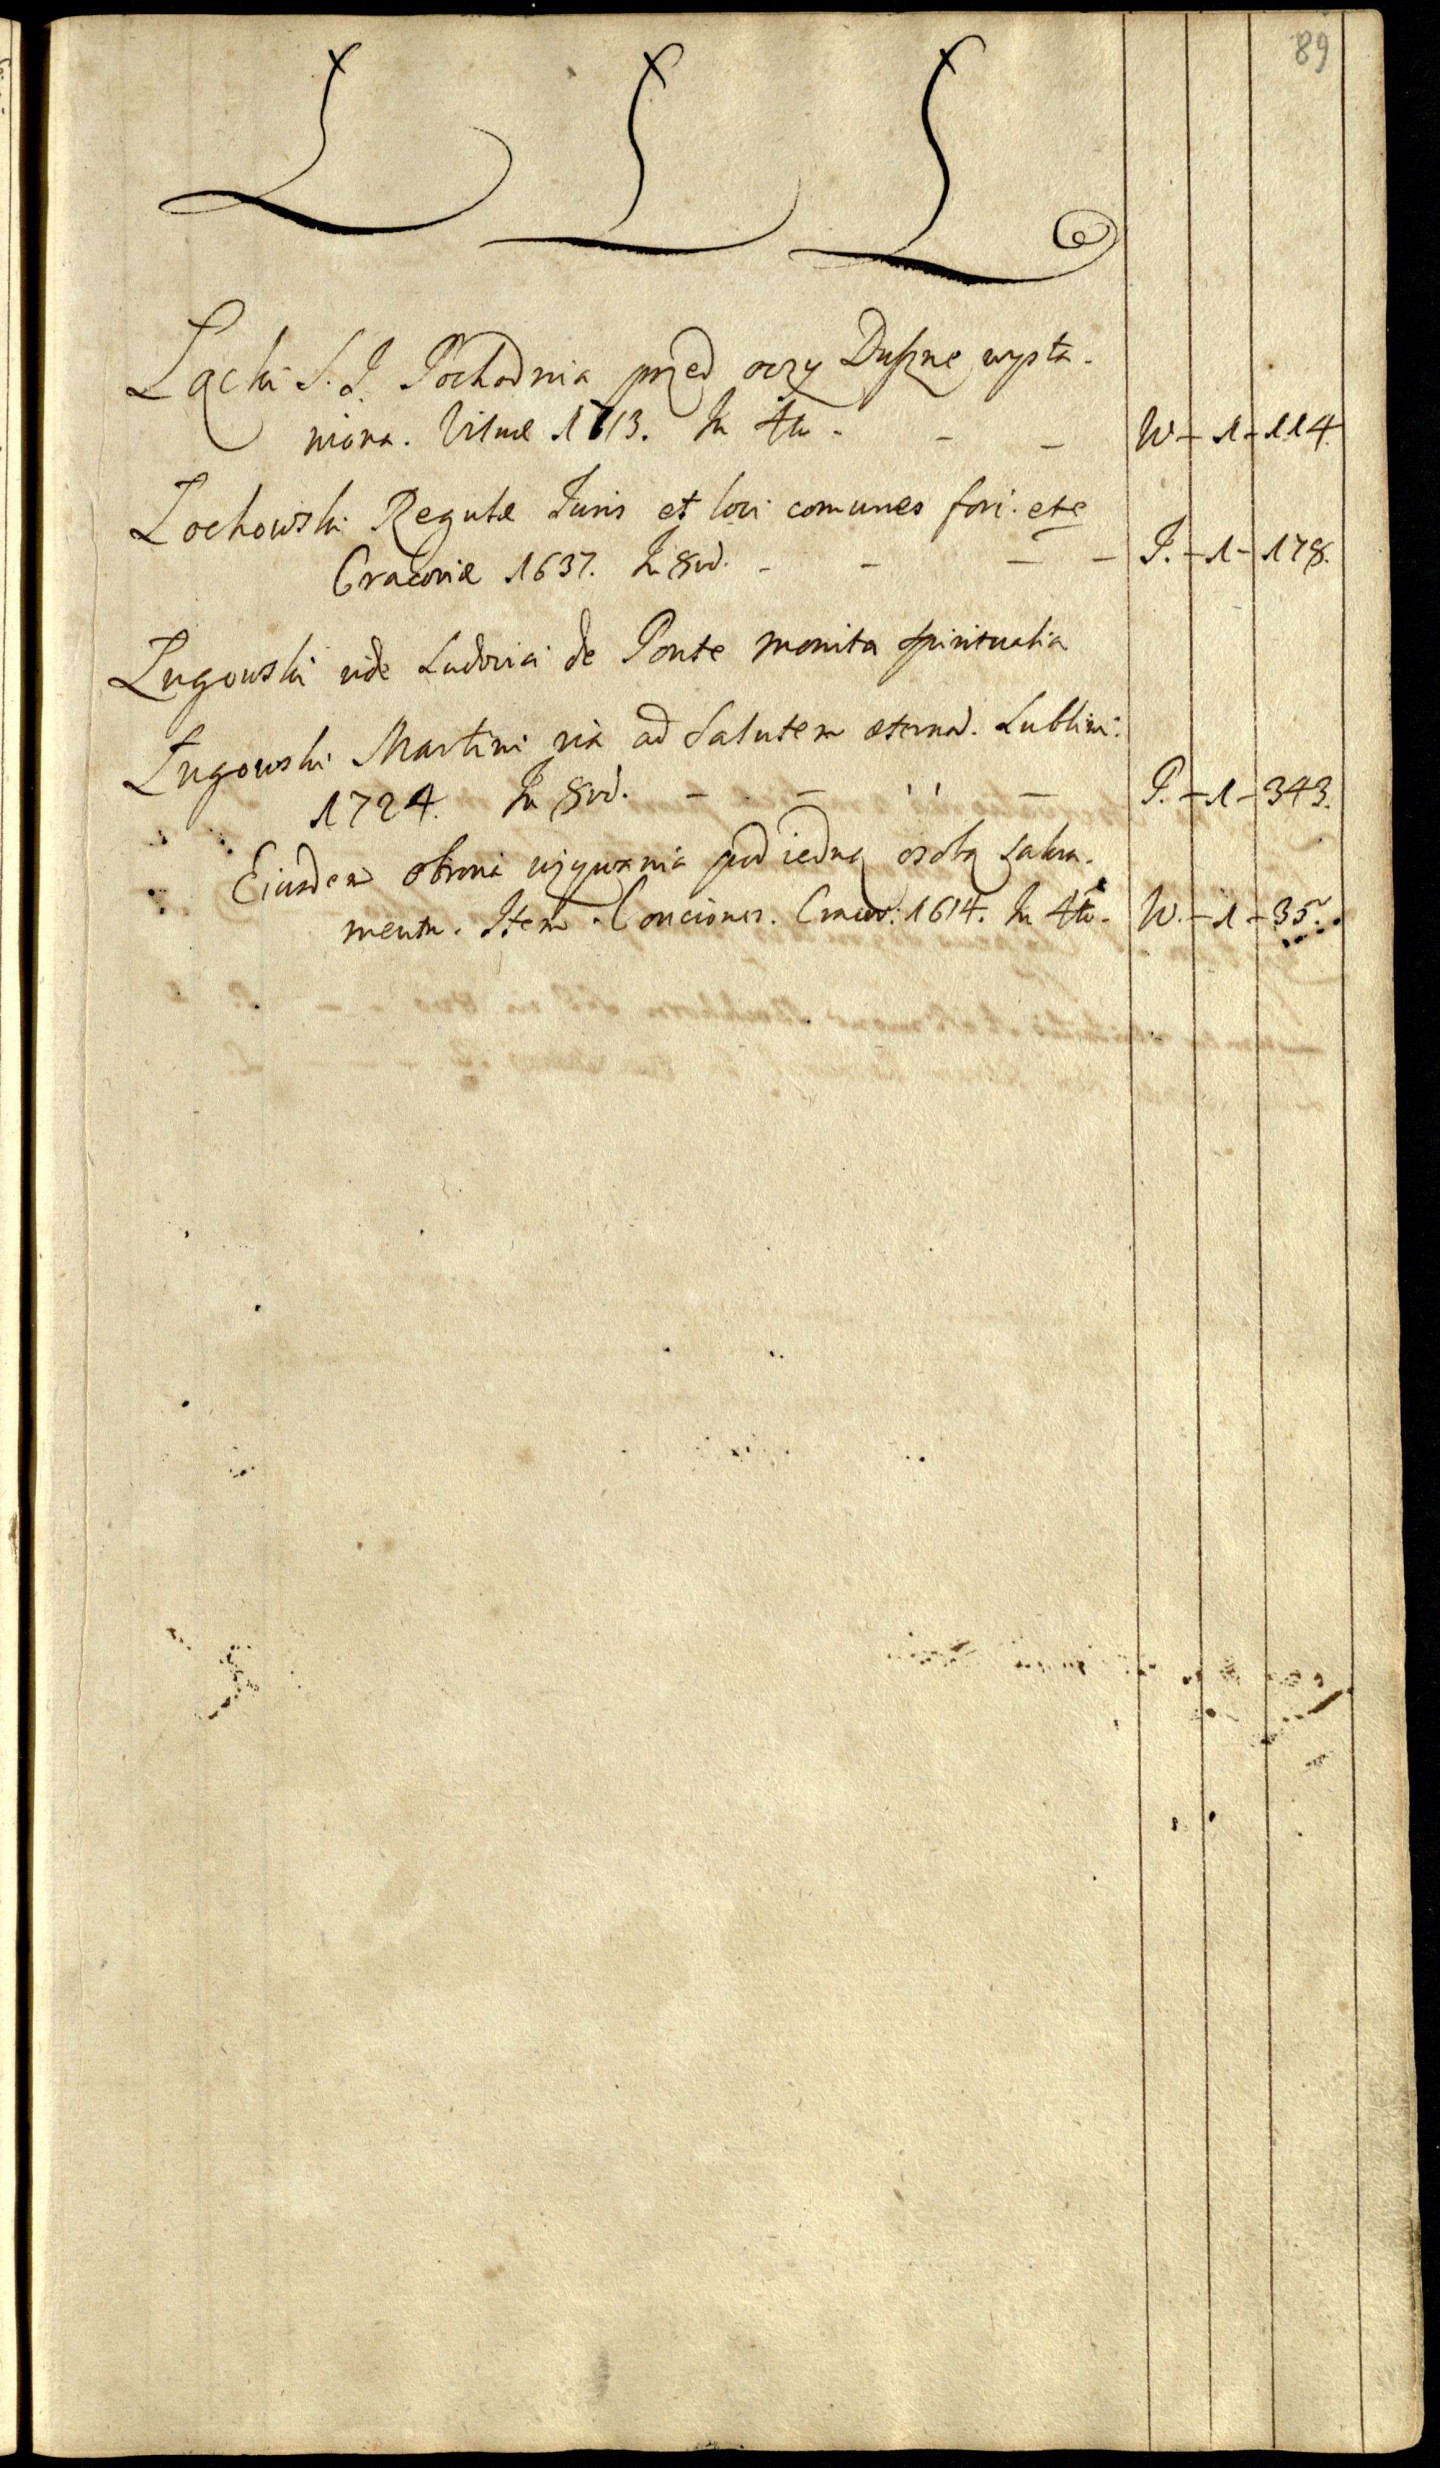 89
Ł Ł Ł
Łącki S. J. Pochodnia przed oczy Duszne wysta-
wiona. Vilnæ 1613. In 4to - - - W - 1 - 114.
Łochowski Regulæ Juris et loci comunes fori etc
Cracoviæ 1637. In 8vo. - - - - J. - 1 - 178.
Ługowski vide Ludovici de Ponte monita spiritualia
Ługowski Martini via ad Salutem æternã. Lublini:
1724. In 8vo. - - - - P. - 1 - 343.
Eiusdem obrona używania pod iedną osobą Sakra-
mentu. Item Conciones. Cracov: 1614. In 4to - W. - 1 - 35.